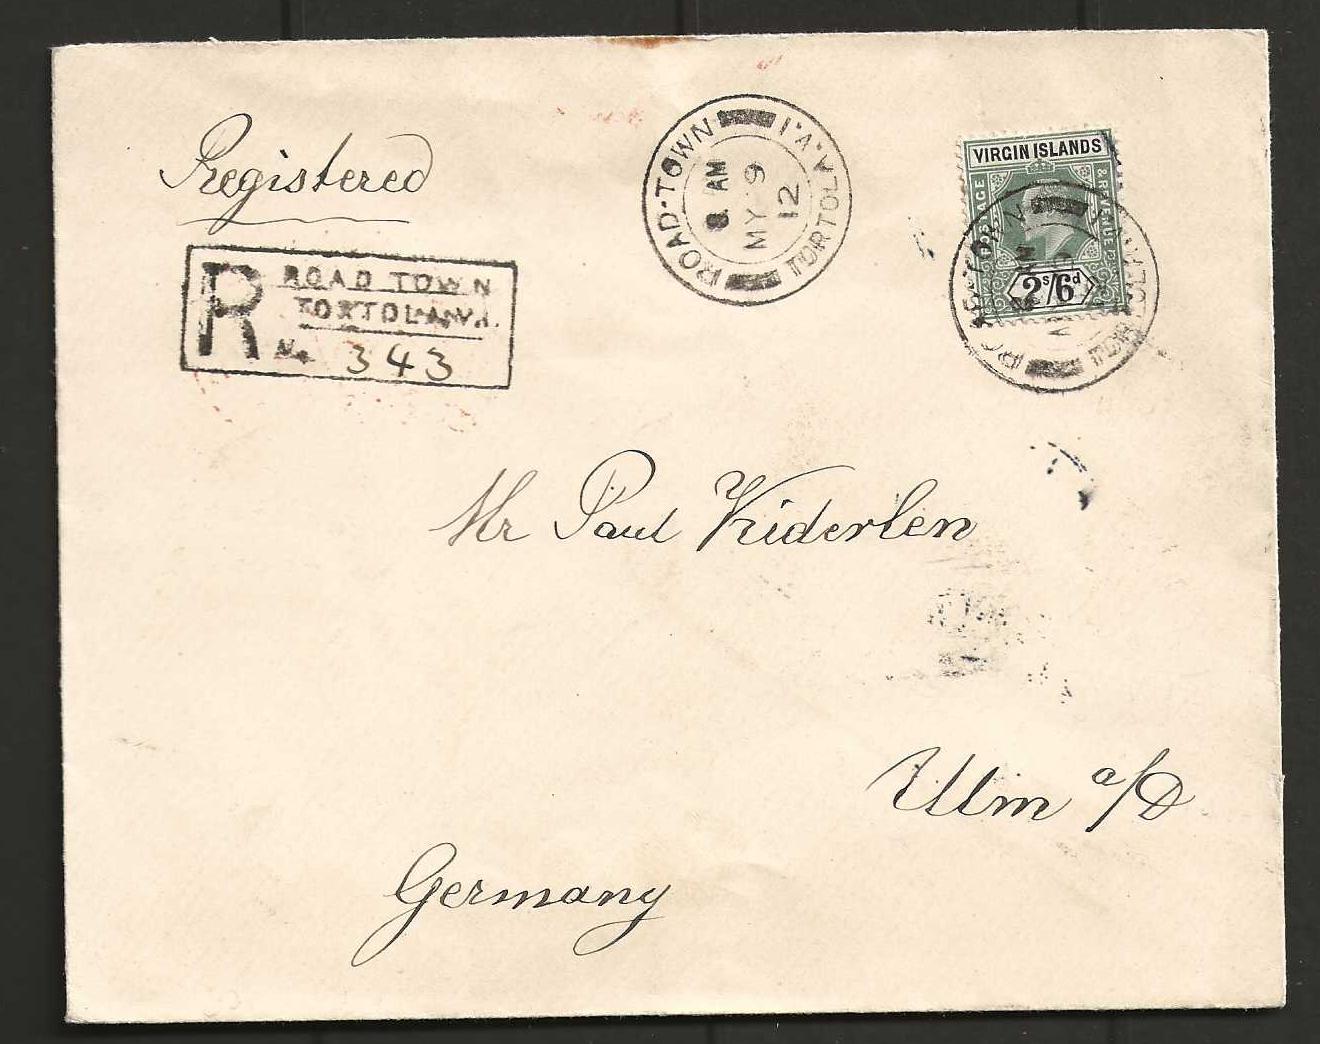 Registered
R
ROAD TOWN
TORTOLA.V.I.
No 343
ROAD-TOWN
TORTOLA.V.I.
8 AM
MY 9
12
VIRGIN ISLANDS
POSTAGE
& REVENUE
2s/6d
Mr Paul Kiderlen
Ulm a/D
Germany